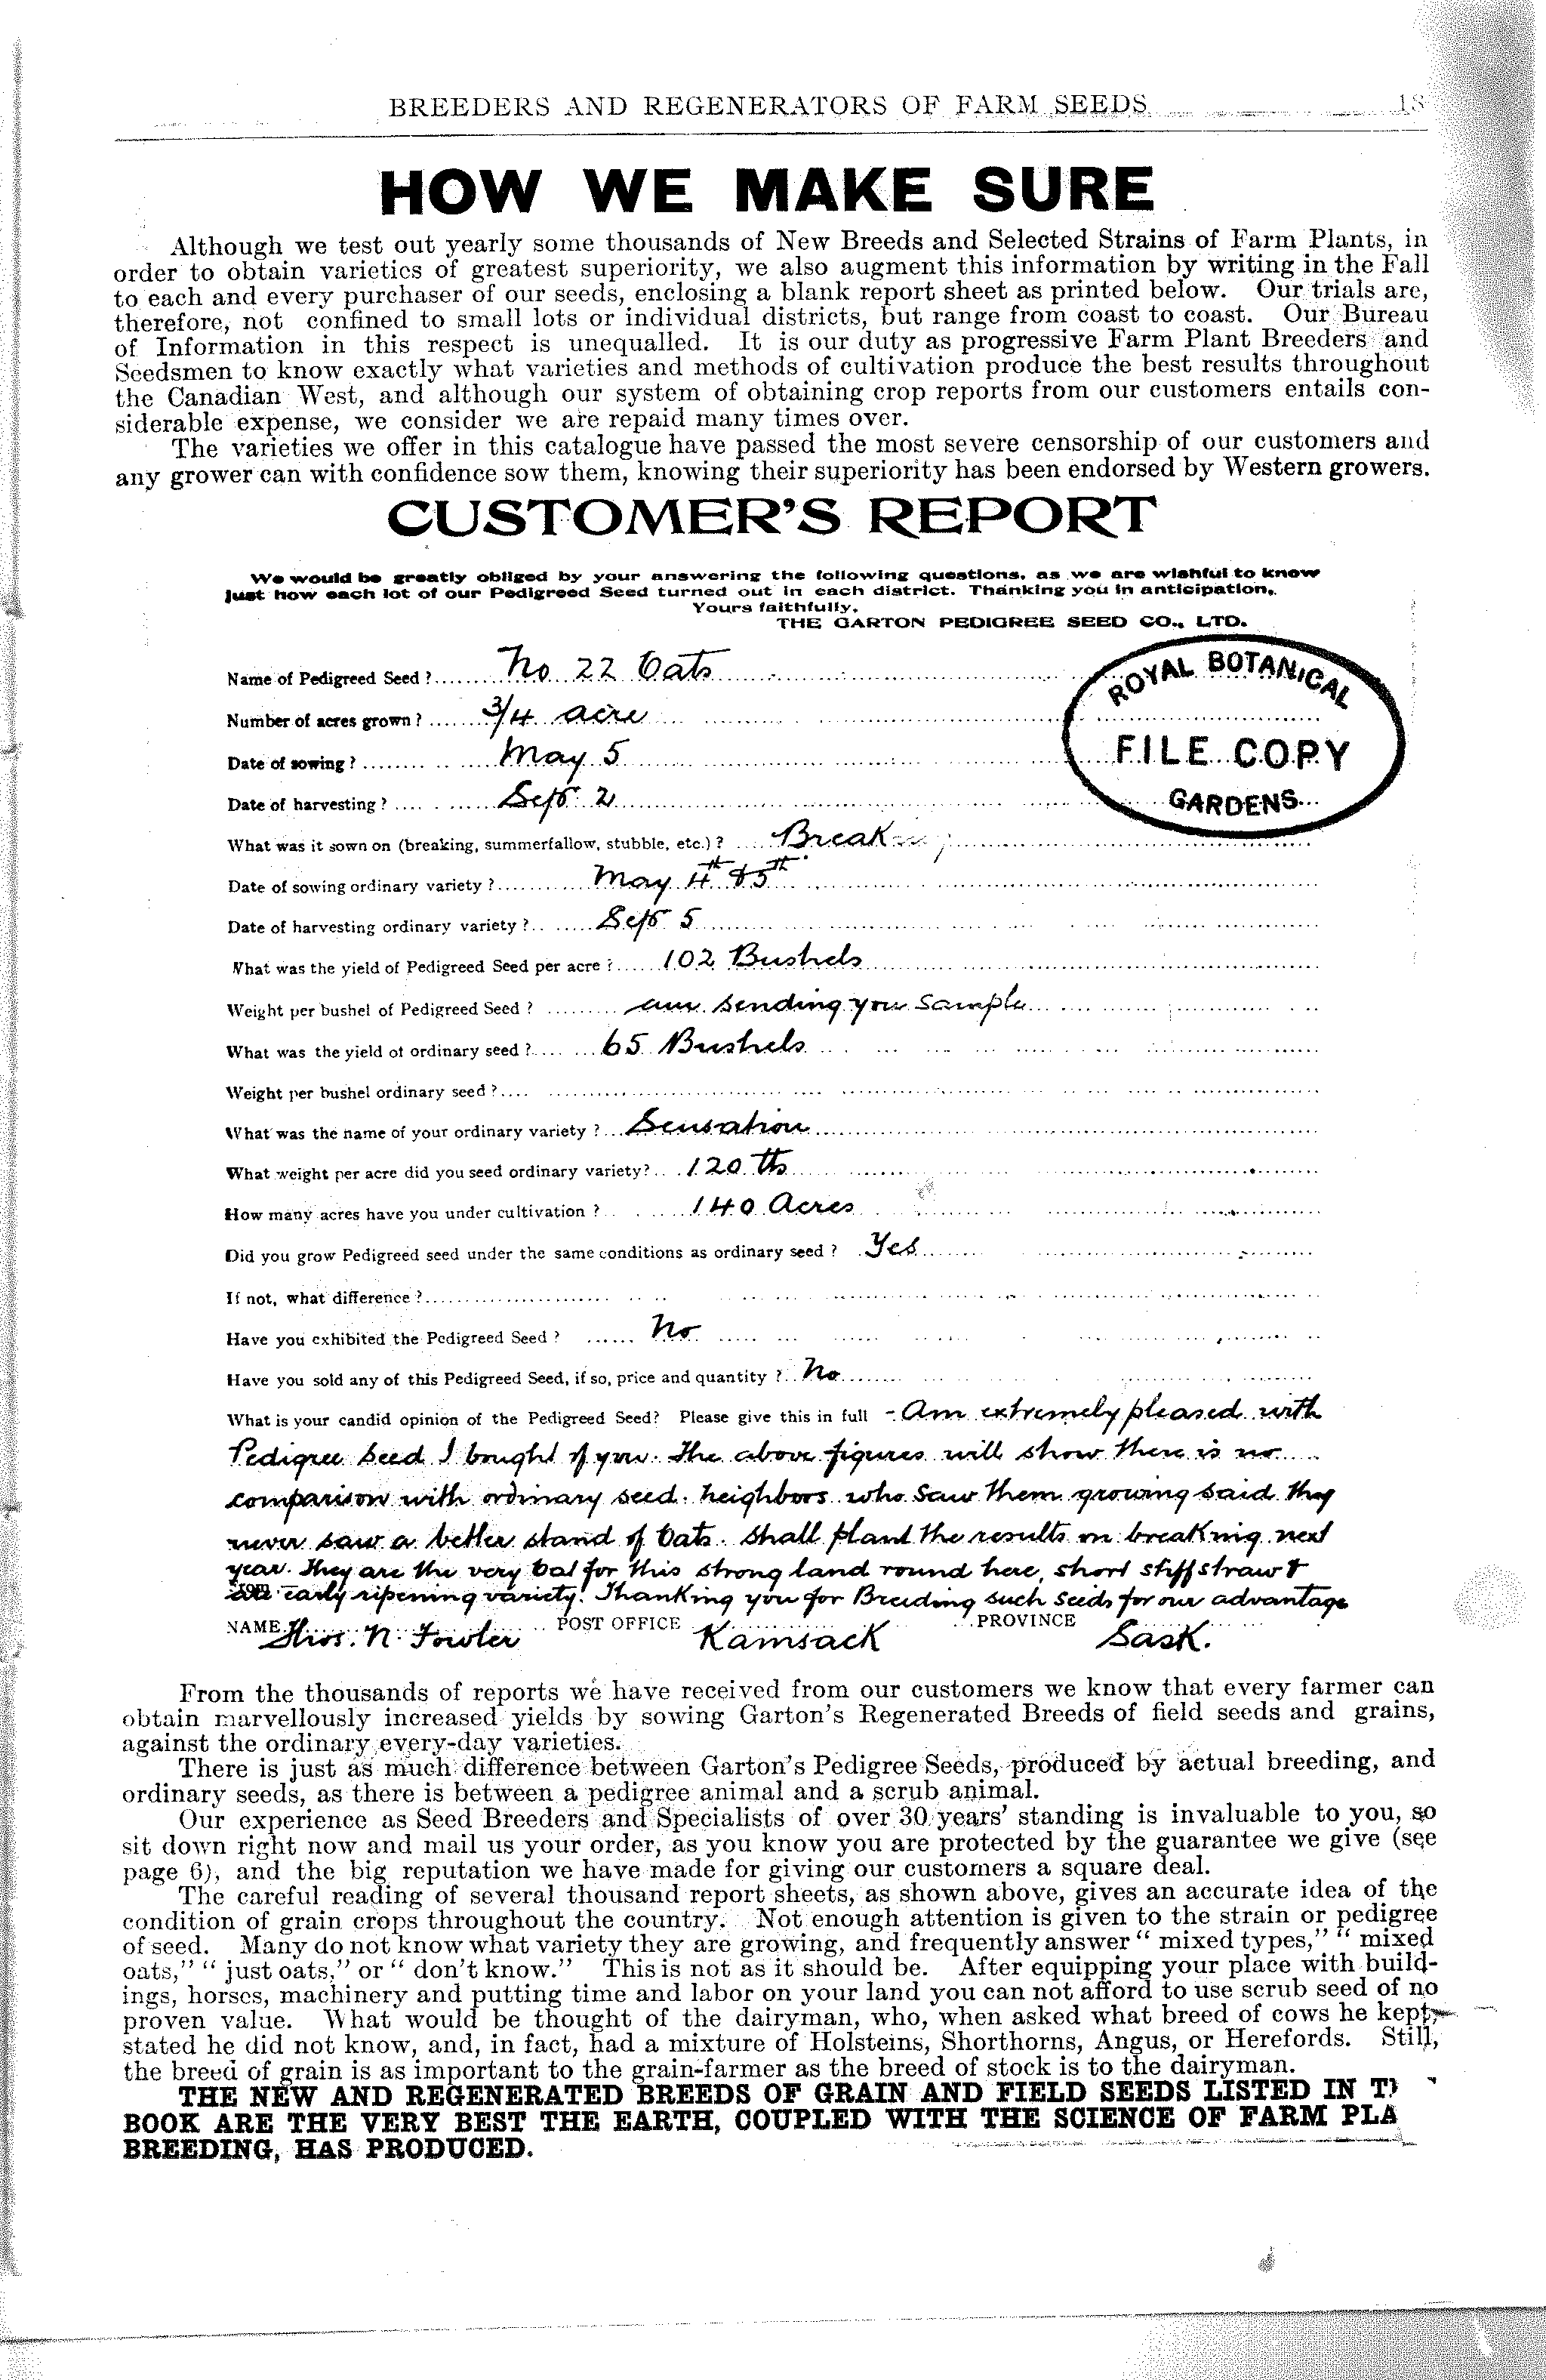 BREEDERS AND REGENERATORS OF FARM SEEDS 18
HOW WE MAKE SURE
Although we test out yearly some thousands of New Breeds and Selected Strains of Farm Plants, in
order to obtain varieties of greatest superiority, we also augment this information by writing in the Fall
to each and every purchaser of our seeds, enclosing a blank report sheet as printed below. Our trials are,
therefore, not confined to small lots or individual districts, but range from coast to coast. Our Bureau
of Information in this respect is unequalled. It is our duty as progressive Farm Plant Breeders and
Seedsmen to know exactly what varieties and methods of cultivation produce the best results throughout
the Canadian West, and although our system of obtaining crop reports from our customers entails con-
siderable expense, we consider we are repaid many times over.
The varieties we offer in this catalogue have passed the most severe censorship of our customers and
any grower can with confidence sow them, knowing their superiority has been endorsed by Western growers.
CUSTOMER'S REPORT
We would be greatly obliged by your answering the following questions, as we are wishful to know
just how each lot of our Pedigreed Seed turned out in each district. Thanking you in anticipation,
Yours faithfully,
THE GARTON PEDIGREE SEED CO., LTD.
Name of Pedigreed Seed? No 22 Oats
ROYAL BOTANICAL
Number of acres grown? 3/4 acre
Date of sowing? May 5
FILE COPY
Date of harvesting? Sept. 2
GARDENS
What was it sown on (breaking, summerfallow, stubble, etc.)? Break
Date of sowing ordinary variety? May 4th & 5th
Date of harvesting ordinary variety? Sept 5
What was the yield of Pedigreed Seed per acre? 102 Bushels
Weight per bushel of Pedigreed Seed? am sending you sample
What was the yield of ordinary seed? 65 Bushels
Weight per bushel ordinary seed?
What was the name of your ordinary variety? Sensation
What weight per acre did you seed ordinary variety? 120 lbs
How many acres have you under cultivation? 140 Acres
Did you grow Pedigreed seed under the same conditions as ordinary seed? Yes
If not, what difference?
Have you exhibited the Pedigreed Seed? No
Have you sold any of this Pedigreed Seed, if so, price and quantity? No
What is your candid opinion of the Pedigreed Seed? Please give this in full - Am extremely pleased with
Pedigree Seed I bought of you. The above figures will show there is no
comparison with ordinary seed. Neighbors who saw them growing said they
never saw a better stand of Oats. Shall plant the results on breaking next
year. They are the very Oat for this strong land round here, short stiff straw &
early ripening variety. Thanking you for Breeding such seeds for our advantage
NAME Thos. N. Fowler POST OFFICE Kamsack PROVINCE Sask.
From the thousands of reports we have received from our customers we know that every farmer can
obtain marvellously increased yields by sowing Garton's Regenerated Breeds of field seeds and grains,
against the ordinary every-day varieties.
There is just as much difference between Garton's Pedigree Seeds, produced by actual breeding, and
ordinary seeds, as there is between a pedigree animal and a scrub animal.
Our experience as Seed Breeders and Specialists of over 30 years' standing is invaluable to you, so
sit down right now and mail us your order, as you know you are protected by the guarantee we give (see
page 6), and the big reputation we have made for giving our customers a square deal.
The careful reading of several thousand report sheets, as shown above, gives an accurate idea of the
condition of grain crops throughout the country. Not enough attention is given to the strain or pedigree
of seed. Many do not know what variety they are growing, and frequently answer "mixed types," "mixed
oats," "just oats," or "don't know." This is not as it should be. After equipping your place with build-
ings, horses, machinery and putting time and labor on your land you can not afford to use scrub seed of no
proven value. What would be thought of the dairyman, who, when asked what breed of cows he kept,
stated he did not know, and, in fact, had a mixture of Holsteins, Shorthorns, Angus, or Herefords. Still,
the breed of grain is as important to the grain-farmer as the breed of stock is to the dairyman.
THE NEW AND REGENERATED BREEDS OF GRAIN AND FIELD SEEDS LISTED IN
BOOK ARE THE VERY BEST THE EARTH, COUPLED WITH THE SCIENCE OF FARM PLA
BREEDING, HAS PRODUCED.